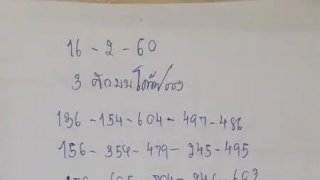 16 - 2 - 60
3 ตัวบนโต๊ด
136 - 154 - 604 - 497 - 486
156 - 354 - 479 - 245 - 495